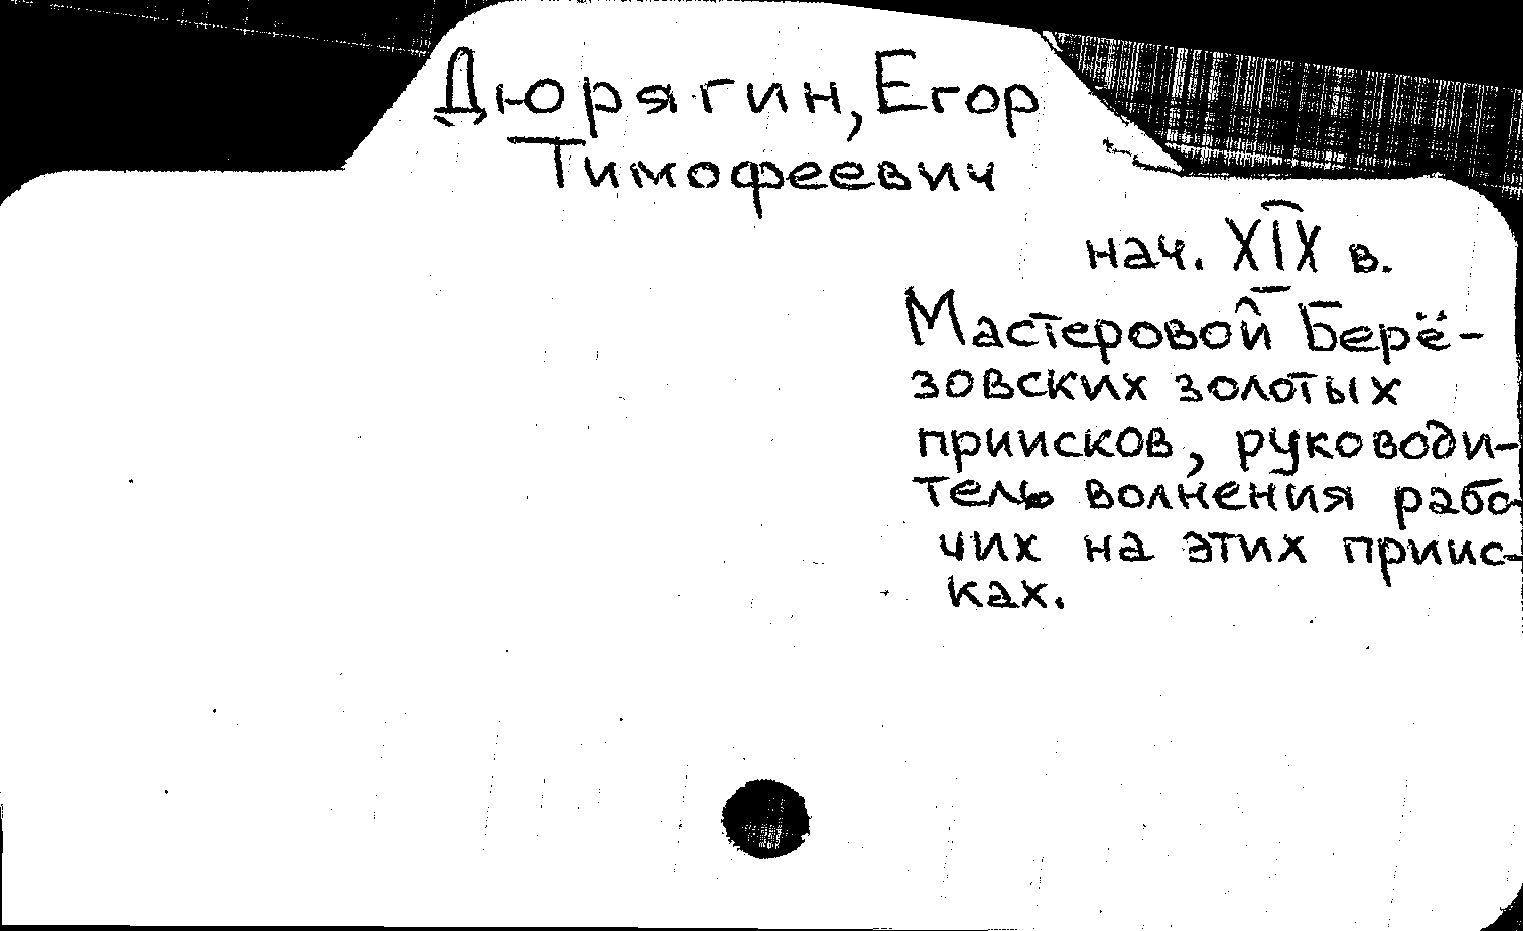 Дюрягин, Егор
Тимофеевич
нач. XIX в.
Мастеровой Берё-
зовских золотых
приисков, руководи-
тель волнения рабо-
чих на этих приис-
ках.